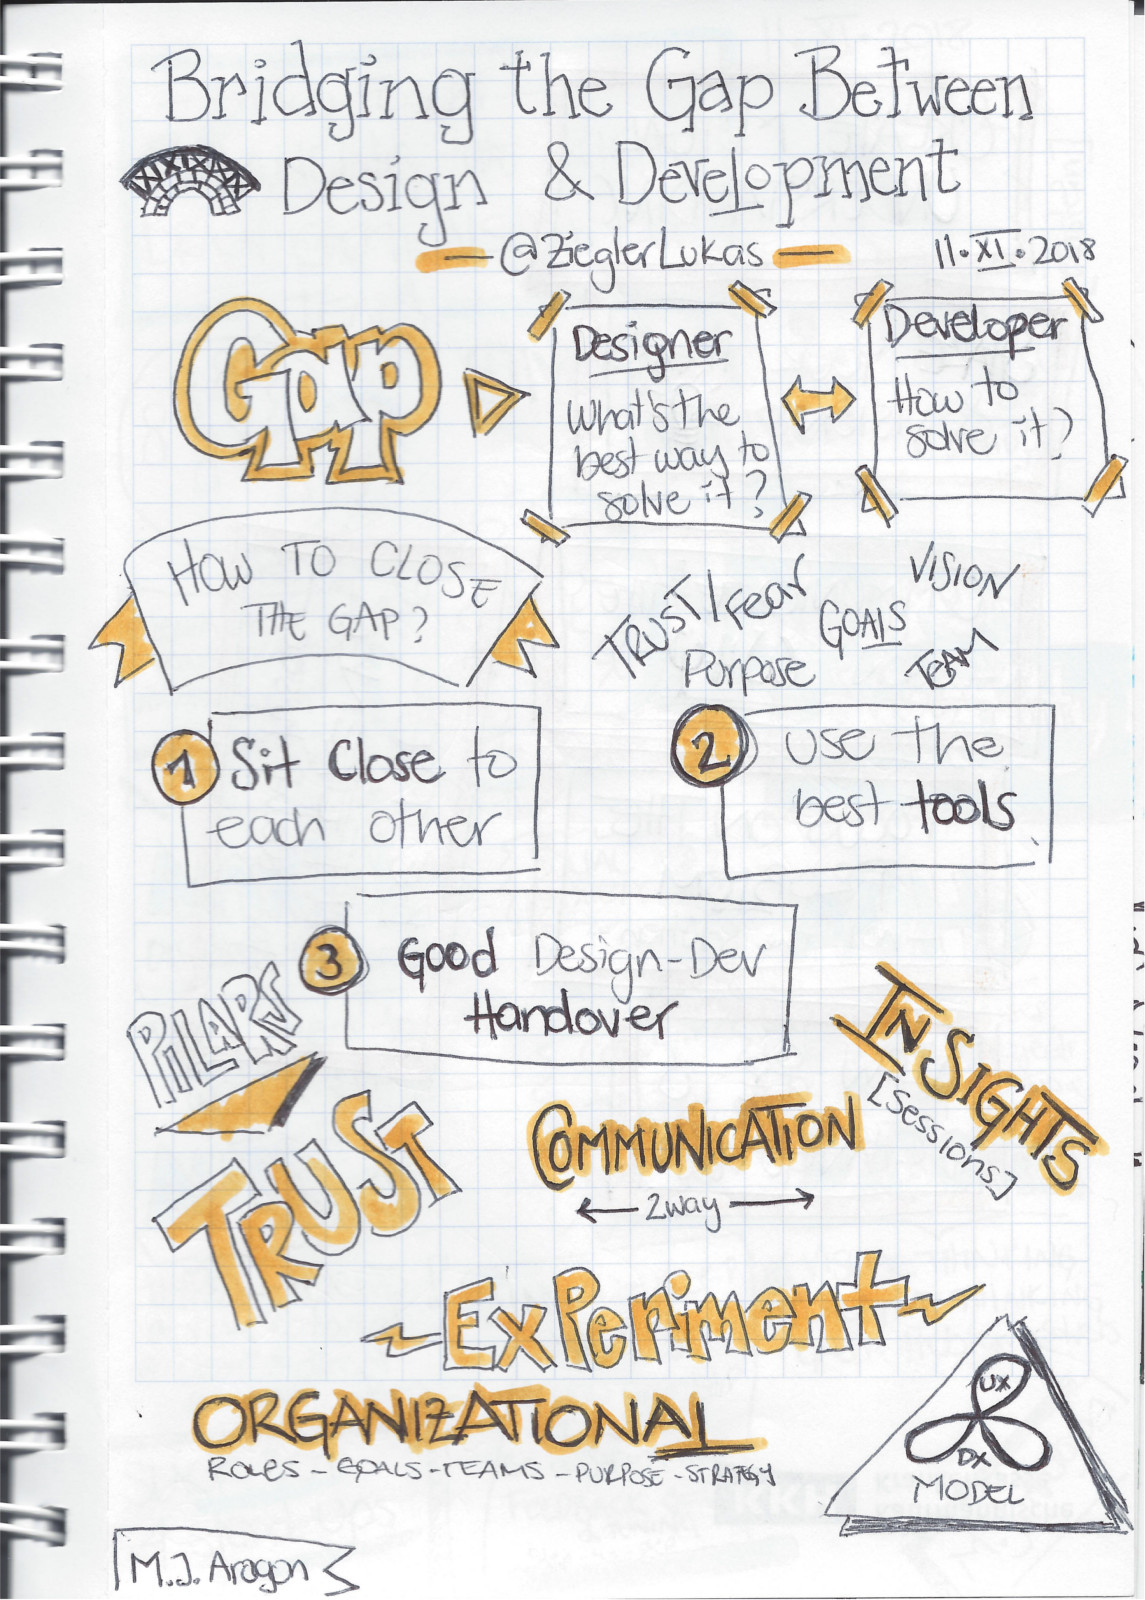 Bridging the Gap Between
Design & Development
@ZieglerLukas
11.XI.2018
Gap
Designer
What's the
best way to
solve it?
Developer
How to
solve it?
HOW TO CLOSE
THE GAP?
TRUST/Fear
Purpose
GOALS
VISION
TEAM
1 Sit Close to
each other
2 Use the
best tools
3 Good Design-Dev
Handover
PILARS
TRUST
COMMUNICATION
2way
INSIGHTS
[Sessions]
ExPeriment
ORGANIZATIONAL
ROLES - GOALS - TEAMS - PURPOSE - STRATEGY
UX
DX
MODEL
M.J. Aragon